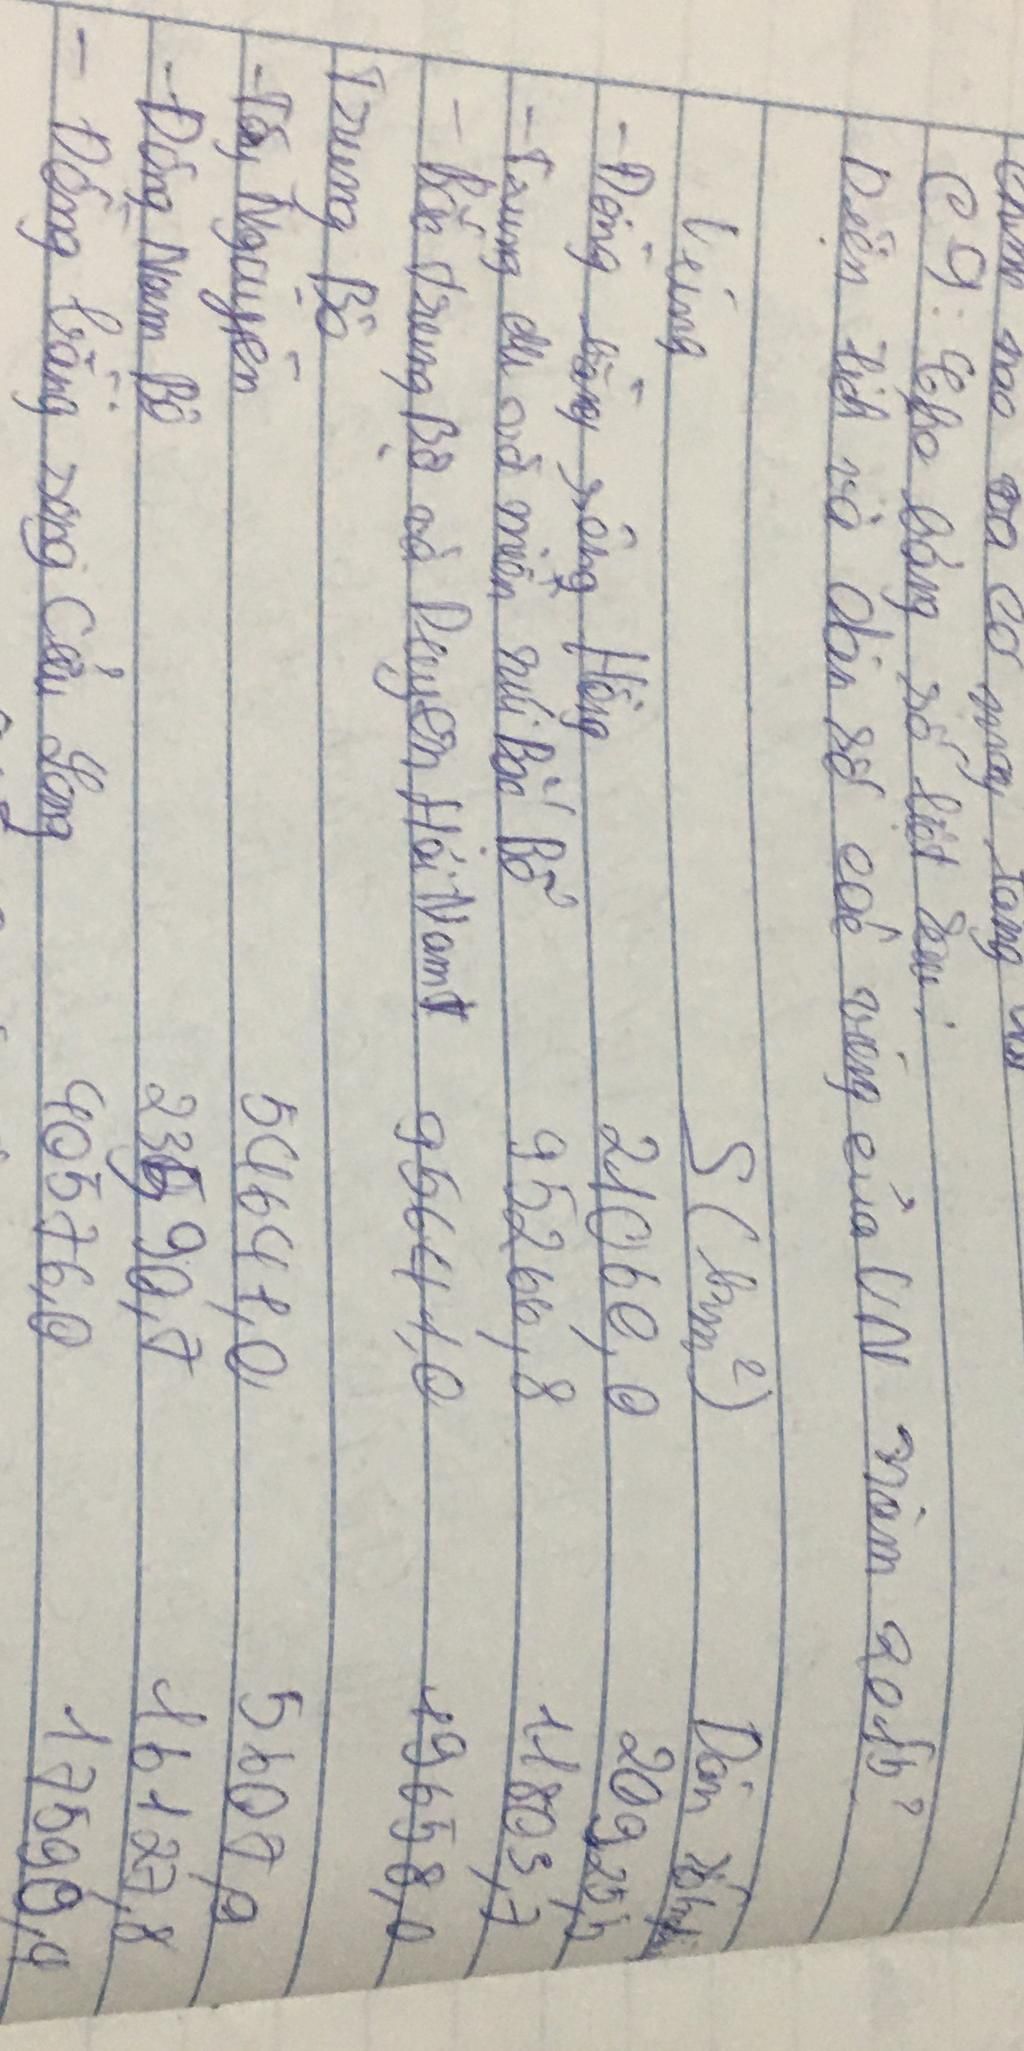 C9: Cho bảng số liệt sau:
Diện tích và dân số các vùng của VN năm 2015?
Vùng S (km²) Dân số
- Đồng bằng sông Hồng 21060,0 20925,5
- Trung du và miền núi Bắc Bộ 95266,8 11803,7
- Bắc Trung Bộ và Duyên Hải Nam 95641,0 19658,0
Trung Bộ
- Tây Nguyên 54641,0 5607,9
- Đông Nam Bộ 23590,7 16127,8
- Đồng bằng sông Cửu Long 40576,0 17590,4